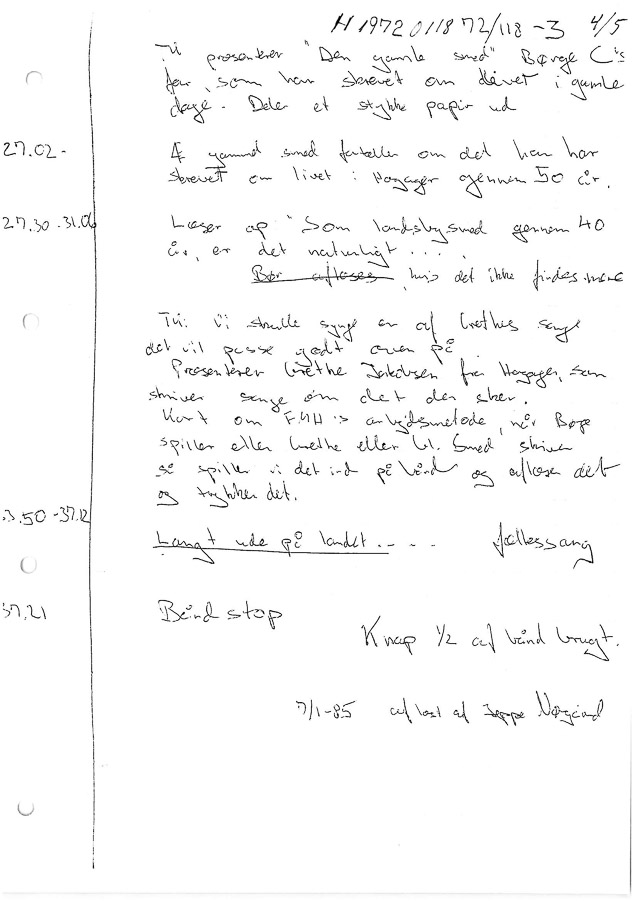 H 1972 0118 72/118-3 4/5
Vi præsenterer "Den gamle smed" Børge C's
far, som har skrevet om livet i gamle
dage. Deler et stykke papir ud
27.02 - gammel smed fortæller om det han har
skrevet om livet i Hogager gennem 50 år.
27.30-31.06 Læser op "Som landsbysmed gennem 40
år, er det naturligt....
Bør afløses, hvis det ikke findes mere
Tvi: Vi skulle synge en af Grethes sange
det vil passe godt oven på
Præsenterer Grethe Jakobsen fra Hogager, som
skriver sange om det der sker.
Kort om FMH's arbejdsmetode, når Børge
spiller eller Grethe eller Gl. Smed skriver
så spiller vi det ind på bånd og aflæser det
og trykker det.
3.50-37.12
Langt ude på landet.... fællessang
37.21 Bånd stop
Knap 1/2 af bånd brugt.
7/1-85 aflæst af Jeppe Nørgård